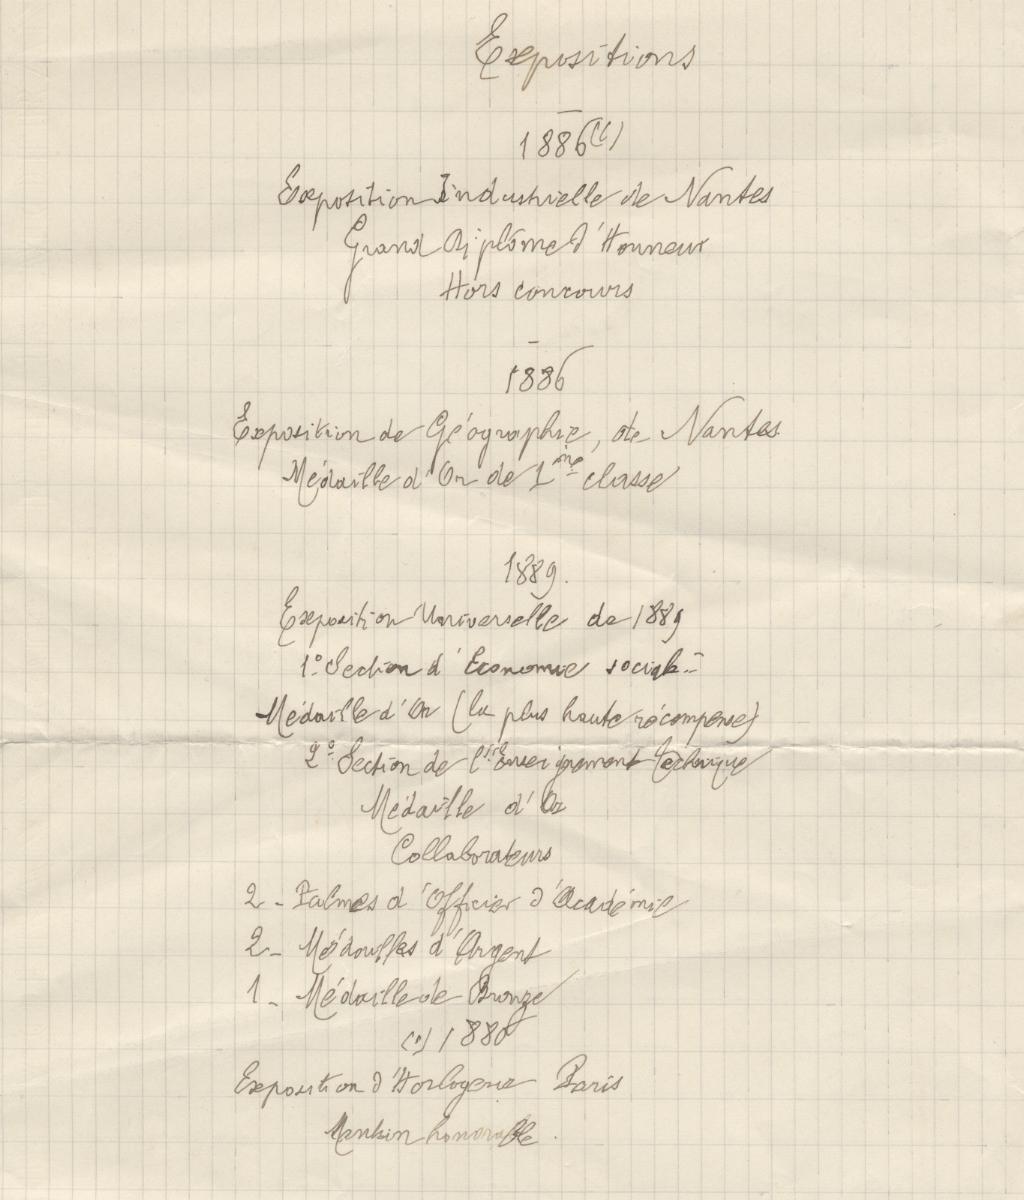 Expositions
1886 (1)
Exposition Industrielle de Nantes
Grand Diplôme d'Honneur
Hors concours
1886
Exposition de Géographie, de Nantes
Médaille d'Or de 1ère classe
1889.
Exposition Universelle de 1889
1º Section d'Economie sociale
Médaille d'Or (la plus haute récompense)
2º Section de l'Enseignement Technique
Médaille d'Or
Collaborateurs
2 - Palmes d'Officier d'Académie
2 - Médailles d'Argent
1 - Médaille de Bronze
(1) 1880
Exposition d'Horlogerie Paris
Mention honorable.